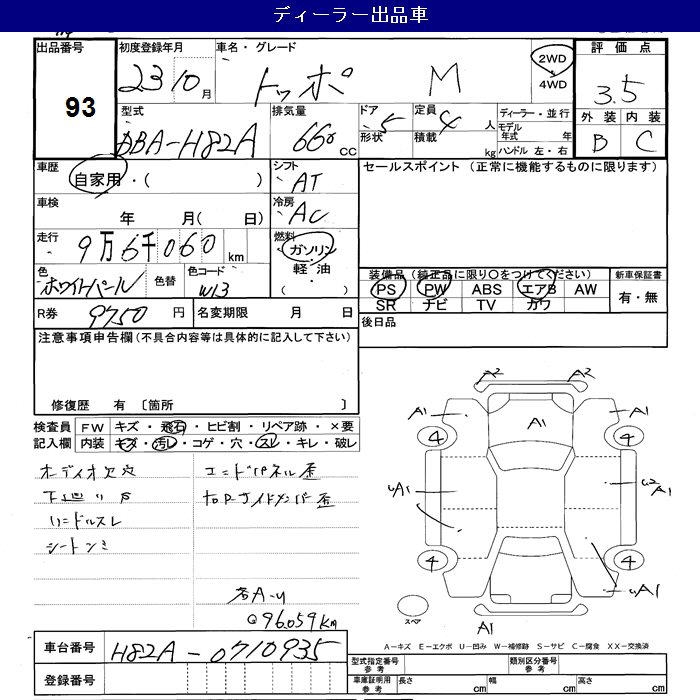 ディーラー出品車
出品番号
93
初度登録年月
23 10月
車名・グレード
トッポ M
2WD
4WD
評価点
3.5
外装 内装
B C
型式
DBA-H82A
排気量
660 cc
ドア 5
形状
定員 4 人
積載 kg
ディーラー・並行
モデル年式 年
ハンドル 左・右
車歴
自家用・( )
シフト
AT
セールスポイント (正常に機能するものに限ります)
車検
年 月( 日)
冷房
AC
走行
9万6千060 km
燃料
ガソリン
軽油
( ・ )
色
ホワイトパール
色替
色コード
W13
装備品 (純正品に限り○をつけてください)
PS PW ABS エアB AW
SR ナビ TV カワ
新車保証書
有・無
R券 9750 円
名変期限 月 日
後日品
注意事項申告欄(不具合内容等は具体的に記入して下さい)
修復歴 有 〔箇所 〕
検査員 FW キズ・飛石・ヒビ割・リペア跡・×要
記入欄 内装 キズ・汚レ・コゲ・穴・スレ・キレ・破レ
オーディオ欠穴
下廻りサ
ハンドルスレ
シートシミ
コードパネル歪
右Rサイドメンバー歪
各A-U
96.059km
A2 A2
A1 A1 A1
4 4
uA1 u2 A1
4 4
uA1
スペア
A1
A-キズ E-エクボ U-凹み W-補修跡 S-サビ C-腐食 XX-交換済
車台番号 H82A-0710935
登録番号
型式指定番号 参考
類別区分番号 参考
車庫証明用 参考 長さ cm 幅 cm 高さ cm